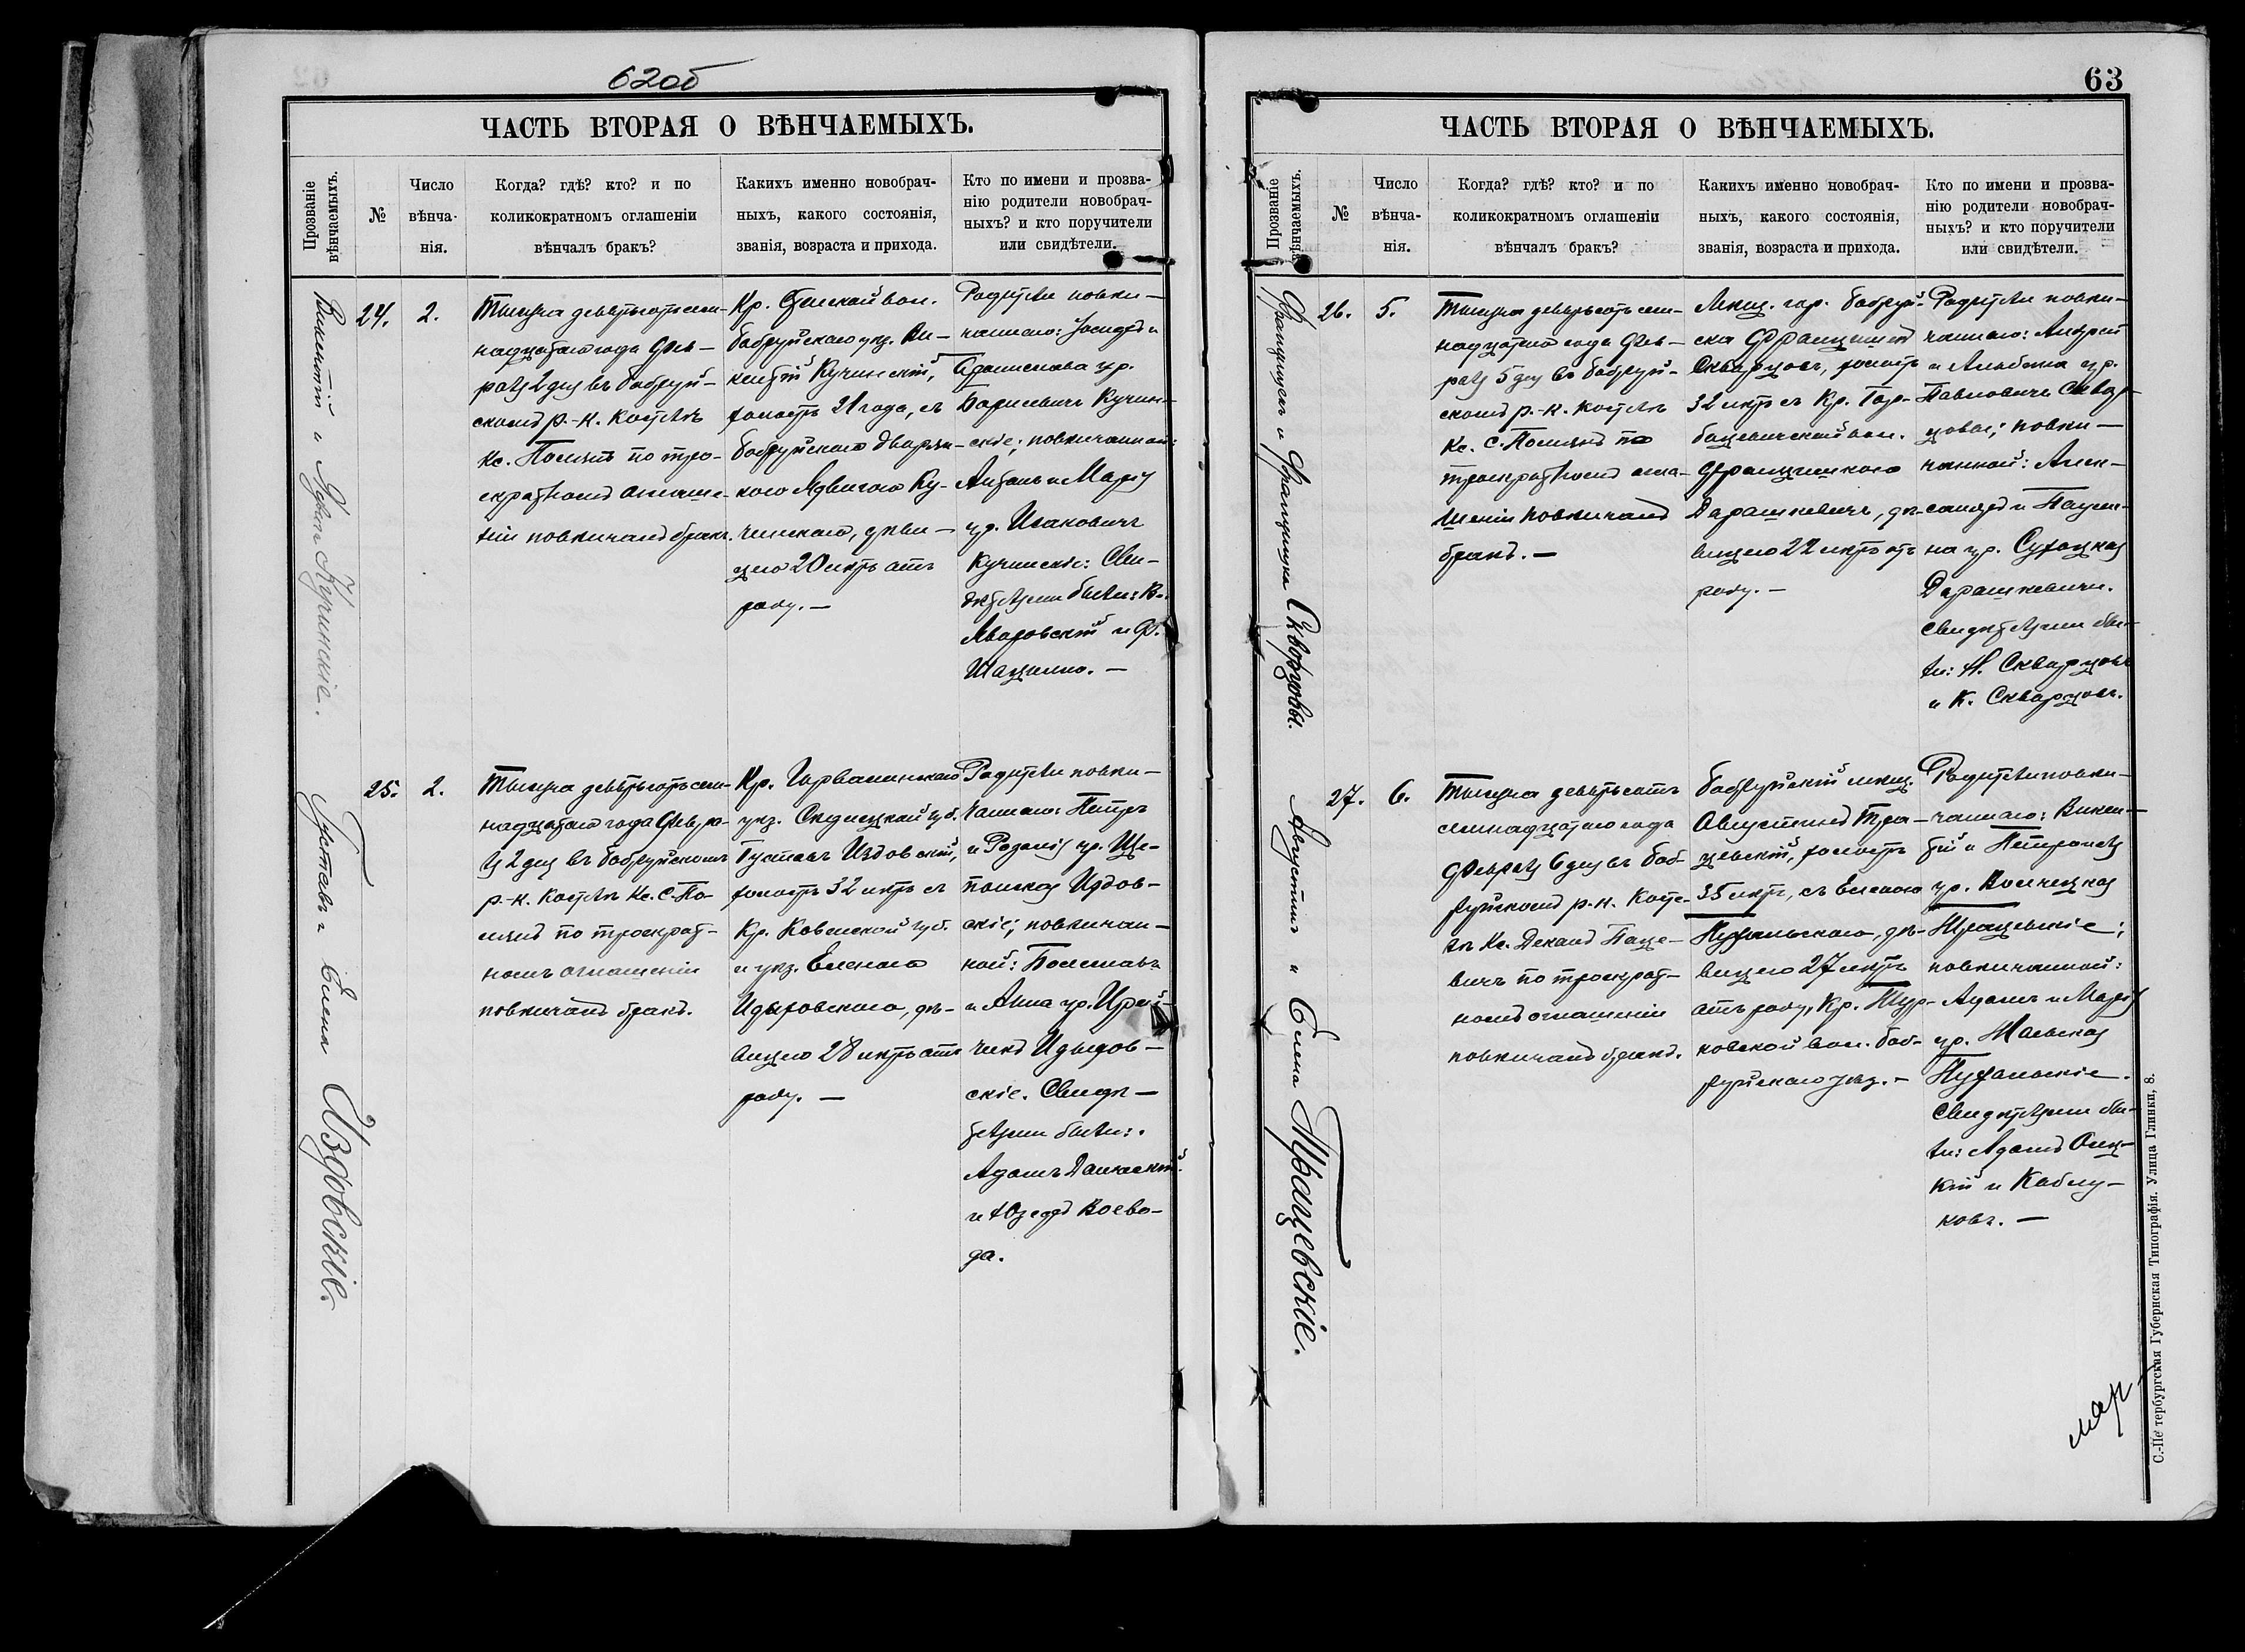 62об
ЧАСТЬ ВТОРАЯ О ВѢНЧАЕМЫХЪ.
Прозваніе
вѣнчаемыхъ.
№
Число
вѣнча-
нія.
Когда? гдѣ? кто? и по
коликократномъ оглашеніи
вѣнчалъ бракъ?
Какихъ именно новобрач-
ныхъ, какого состоянія,
званія, возраста и прихода.
Кто по имени и прозва-
нію родители новобрач-
ныхъ? и кто поручители
или свидѣтели.
Викентій и Ядвига Кучинскіе.
24.
2.
Тысяча девятьсотъ сем-
надцатаго года Фев-
раля 2 дня въ Бобруй-
скомъ р.-к. костелѣ
Кс. по трое-
кратномъ оглаше-
ніи повѣнчанъ бракъ.
Кр. вол.
Бобруйскаго уѣз. Ви-
кентій Кучинскій,
холостъ 21 года, съ
Бобруйскою дворян-
кою Ядвигою Ку-
чинскою, дѣви-
цею 20 лѣтъ отъ
роду. —
Родители повѣн-
чаннаго: Іосифъ и
ур.
Борисевичъ Кучин-
скіе; повѣнчанной:
Антонъ и Марія
ур. Исаковичъ
Кучинскіе: Сви-
дѣтелями были: В.
Яворовскій и Ф.
Шацилло. —
Густавъ и Елена Издовскіе.
25.
2.
Тысяча девятьсотъ сем-
надцатаго года Февра-
ля 2 дня въ Бобруйскомъ
р.-к. костелѣ Кс. С. По-
по троекрат-
номъ оглашеніи
повѣнчанъ бракъ.
Кр. Гарволинскаго
уѣз. Сѣдлецкой губ.
Густавъ Издовскій,
холостъ 32 лѣтъ съ
Кр. Ковенской губ.
и уѣз. Еленою
дѣ-
вицею 28 лѣтъ отъ
роду. —
Родители повѣн-
чаннаго: Петръ
и Розалія ур. Ще-
Издов-
скіе; повѣнчан-
ной: Болеславъ
и Анна ур.
скіе. Свидѣ-
телями были:
Адамъ
и Юзефъ Воево-
да.
63
ЧАСТЬ ВТОРАЯ О ВѢНЧАЕМЫХЪ.
Прозваніе
вѣнчаемыхъ.
№
Число
вѣнча-
нія.
Когда? гдѣ? кто? и по
коликократномъ оглашеніи
вѣнчалъ бракъ?
Какихъ именно новобрач-
ныхъ, какого состоянія,
званія, возраста и прихода.
Кто по имени и прозва-
нію родители новобрач-
ныхъ? и кто поручители
или свидѣтели.
Францишекъ и Францишка Скворцовы.
26.
5.
Тысяча девятьсотъ сем-
надцатаго года Фев-
раля 5 дня въ Бобруй-
скомъ р.-к. костелѣ
Кс. С. по
троекратномъ огла-
шеніи повѣнчанъ
бракъ. —
Мѣщ. гор. Бобруй-
ска Францишекъ
Скварцовъ, холостъ
32 лѣтъ съ Кр. Гор-
бацевичской вол.
Францишкою
Дарашкевичъ, дѣ-
вицею 22 лѣтъ отъ
роду. —
Родители повѣн-
чаннаго: Андрей
и Альбина ур.
Павловичъ Сквар-
цовы; повѣн-
чанной: Алек-
сандръ и Паули-
на ур. Сухоцкая
Дарашкевичи.
Свидѣтелями бы-
ли: Скварцовъ
и К. Скварцовъ.
Августинъ и Елена Трацевскіе.
27.
6.
Тысяча девятьсотъ
семнадцатаго года
Февраля 6 дня въ Боб-
руйскомъ р.-к. Косте-
лѣ Кс. Деканъ Паце-
вичъ по троекрат-
номъ оглашеніи
повѣнчанъ бракъ.
Бобруйскій мѣщ.
Августинъ Тра-
цевскій, холостъ
35 лѣтъ, съ Еленою
дѣ-
вицею 27 лѣтъ
отъ роду, Кр. Тур-
ковской вол. Боб-
руйскаго уѣз. —
Родители повѣн-
чаннаго: Викен-
тій и Петронеля
ур.
Трацевскіе;
повѣнчанной:
Адамъ и Марія
ур.
Свидѣтелями бы-
ли: Адамъ
и Каблу-
ковъ. —
мар
С.-Петербургская Губернская Типографія. Улица Глинки, 8.